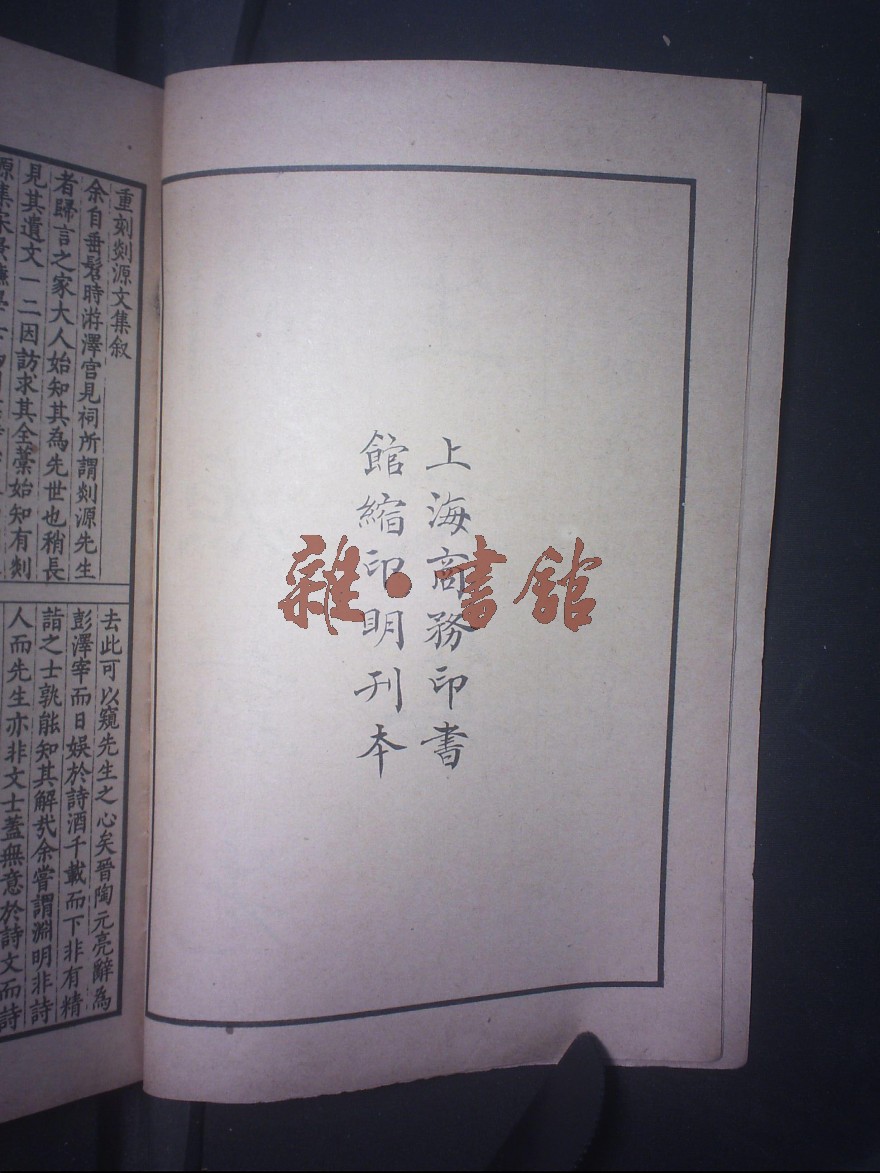 上海商務印書
館縮印明刊本
雜·書館
重刻剡源文集叙
余自垂髫時游澤宮見祠所謂剡源先生
者歸言之家大人始知其為先世也稍長
見其遺文一二因訪求其全藁始知有剡
源集宋景濂
去此可以窺先生之心矣晉陶元亮辭為
彭澤宰而日娛於詩酒千載而下非有精
詣之士孰能知其解㢤余嘗謂淵明非詩
人而先生亦非文士蓋無意於詩文而詩